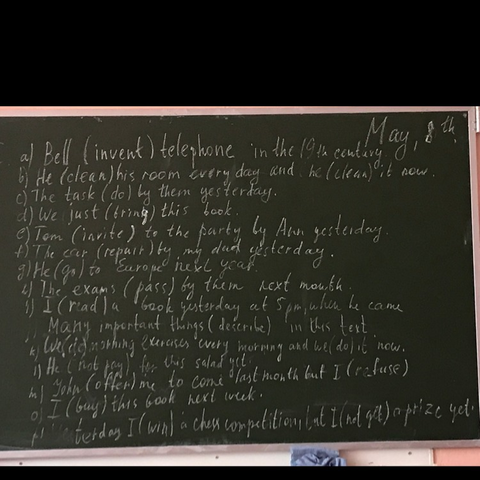 May, 8 th
a) Bell (invent) telephone in the 19th century
b) He (clean) his room every day and he (clean) it now.
c) The task (do) by them yesterday.
d) We just (bring) this book.
e) Tom (invite) to the party by Ann yesterday.
f) The car (repair) by my dad yesterday.
g) He (go) to europe next year.
h) The exams (pass) by them next month.
i) I (read) a book yesterday at 5 pm, when he came
j) Many important things (describe) in this text.
k) We (do) morning exercises every morning and we (do) it now.
l) He (not pay) for this salad yet.
m) John (offer) me to come last month but I (refuse)
o) I (buy) this book next week.
p) terday I (win) a chess competition, but I (not get) a prize yet.